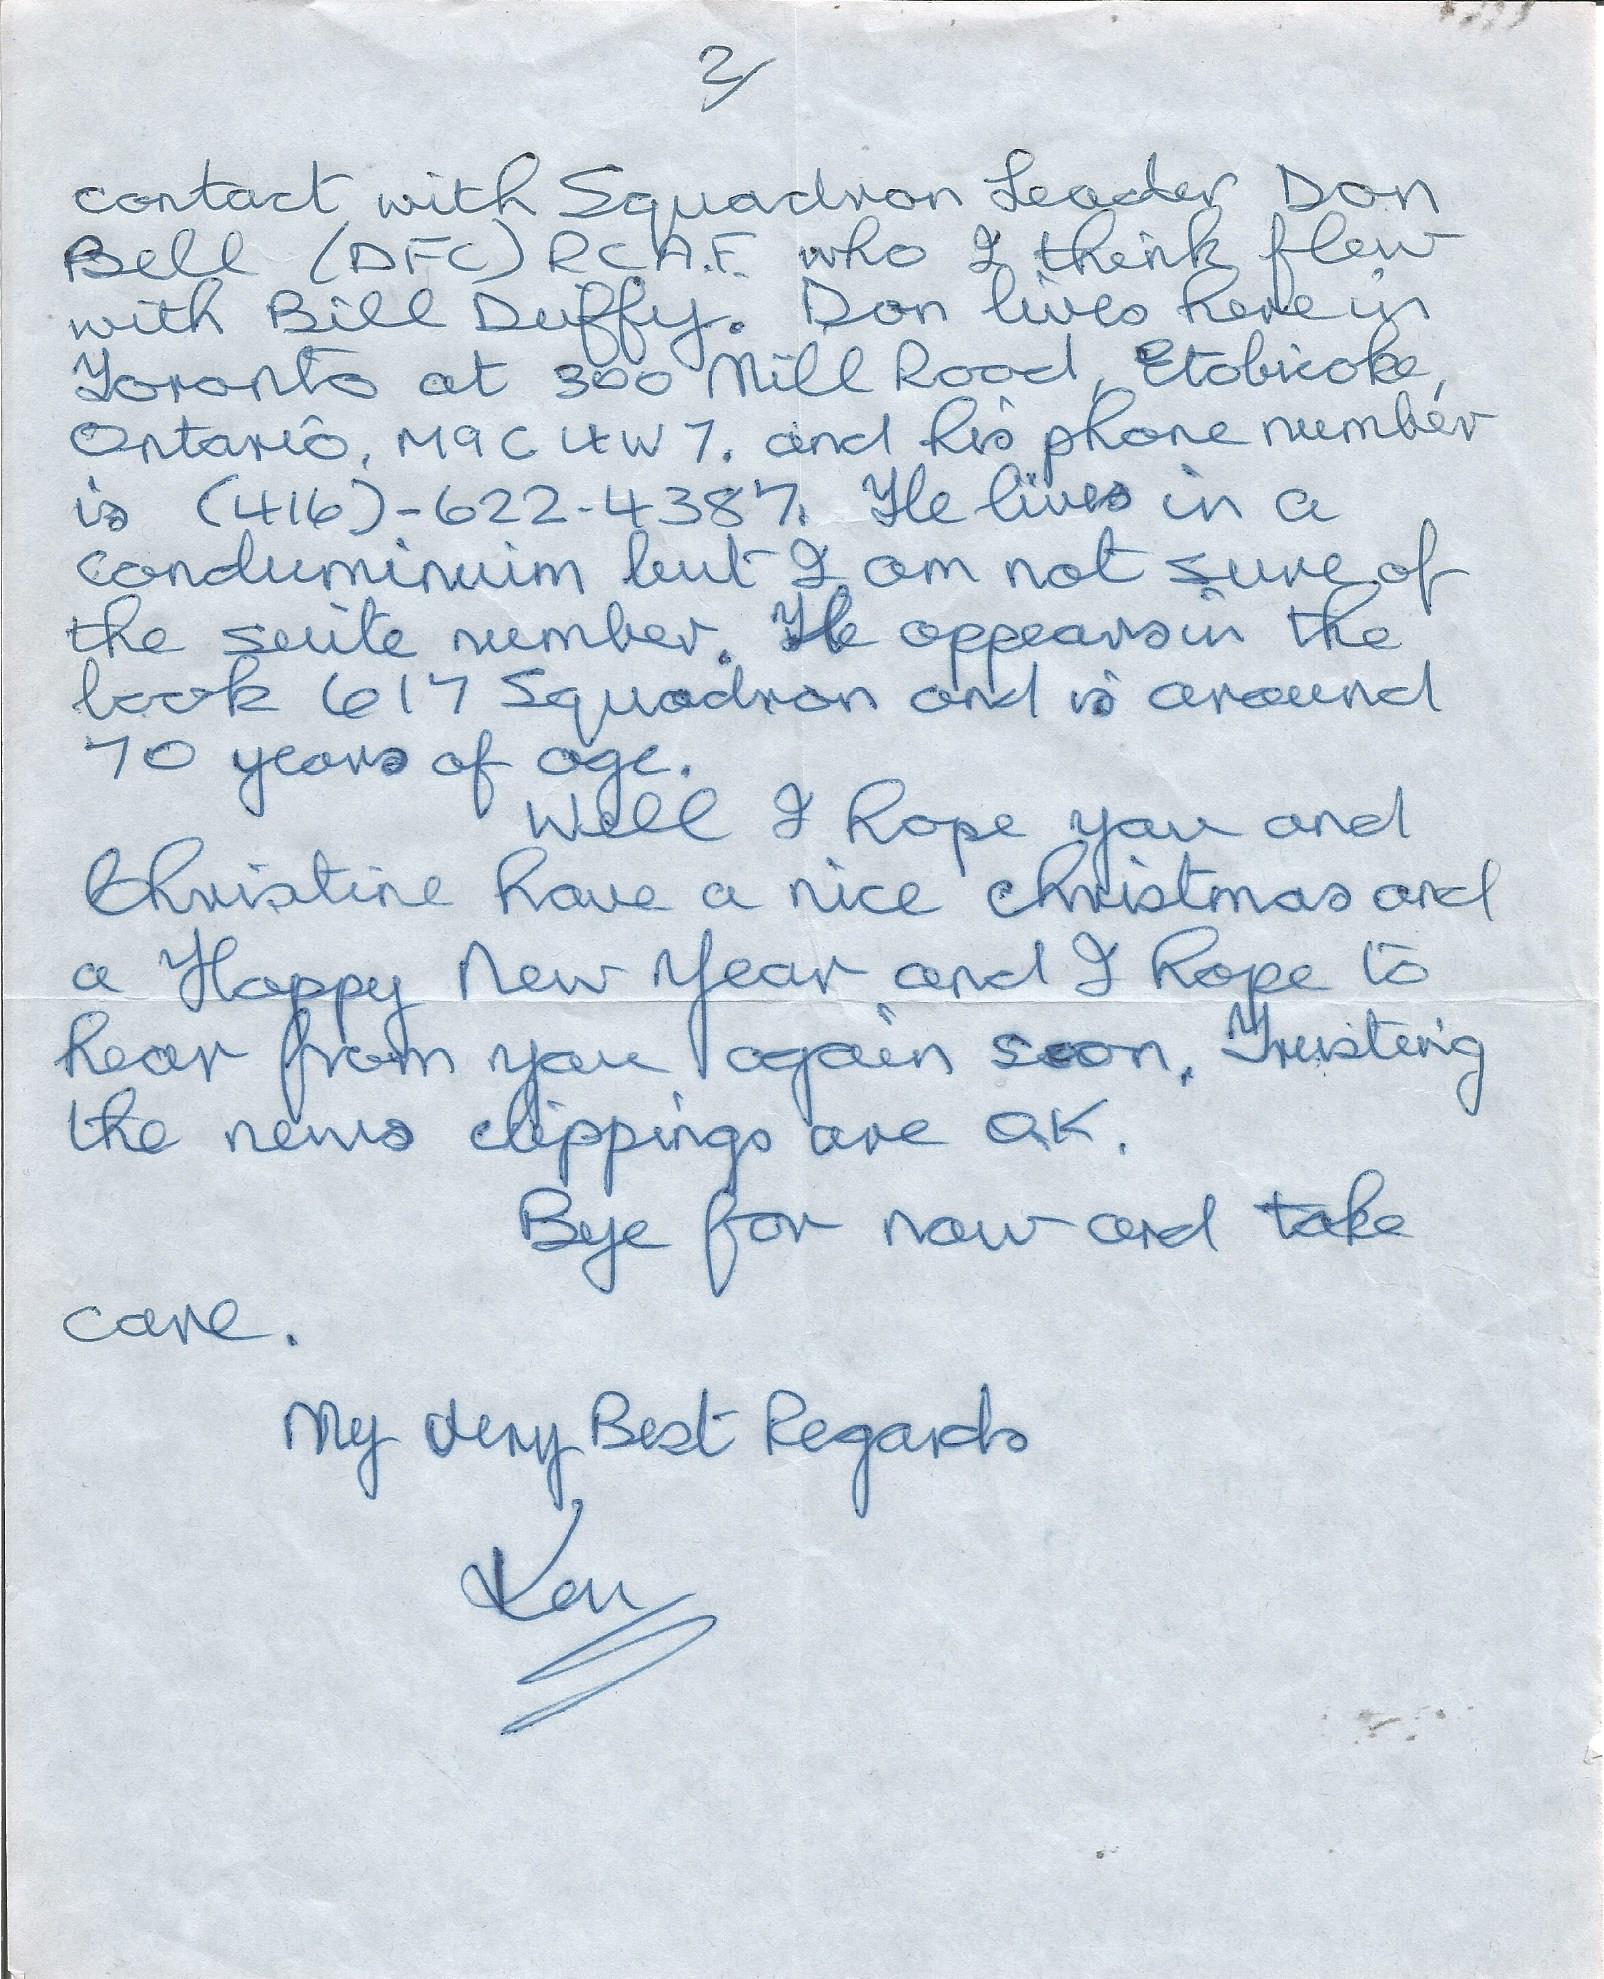 2/
contact with Squadron Leader Don
Bell (DFC) R.C.A.F. who I think flew
with Bill Duffy. Don lives here in
Toronto at 300 Mill Road, Etobicoke,
Ontario, M9C 4W7. and his phone number
is (416)-622-4387. He lives in a
conduminuim but I am not sure of
the suite number. He appears in the
book 617 Squadron and is around
70 years of age.
Well I hope you and
Christine have a nice christmas and
a Happy New Year and I hope to
hear from you again soon. Trusting
the news clippings are OK.
Bye for now and take
care.
My Very Best Regards
Ken